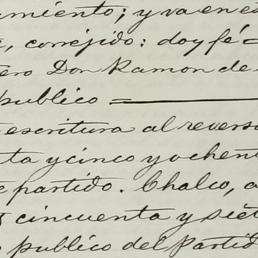 miento; y va en es
, corréjido: doy fé=
ero Don Ramon de
publico =
escritura al revers
ta y cinco y ochent
partido. Chalco, a
cincuenta y siet
publico del Partid